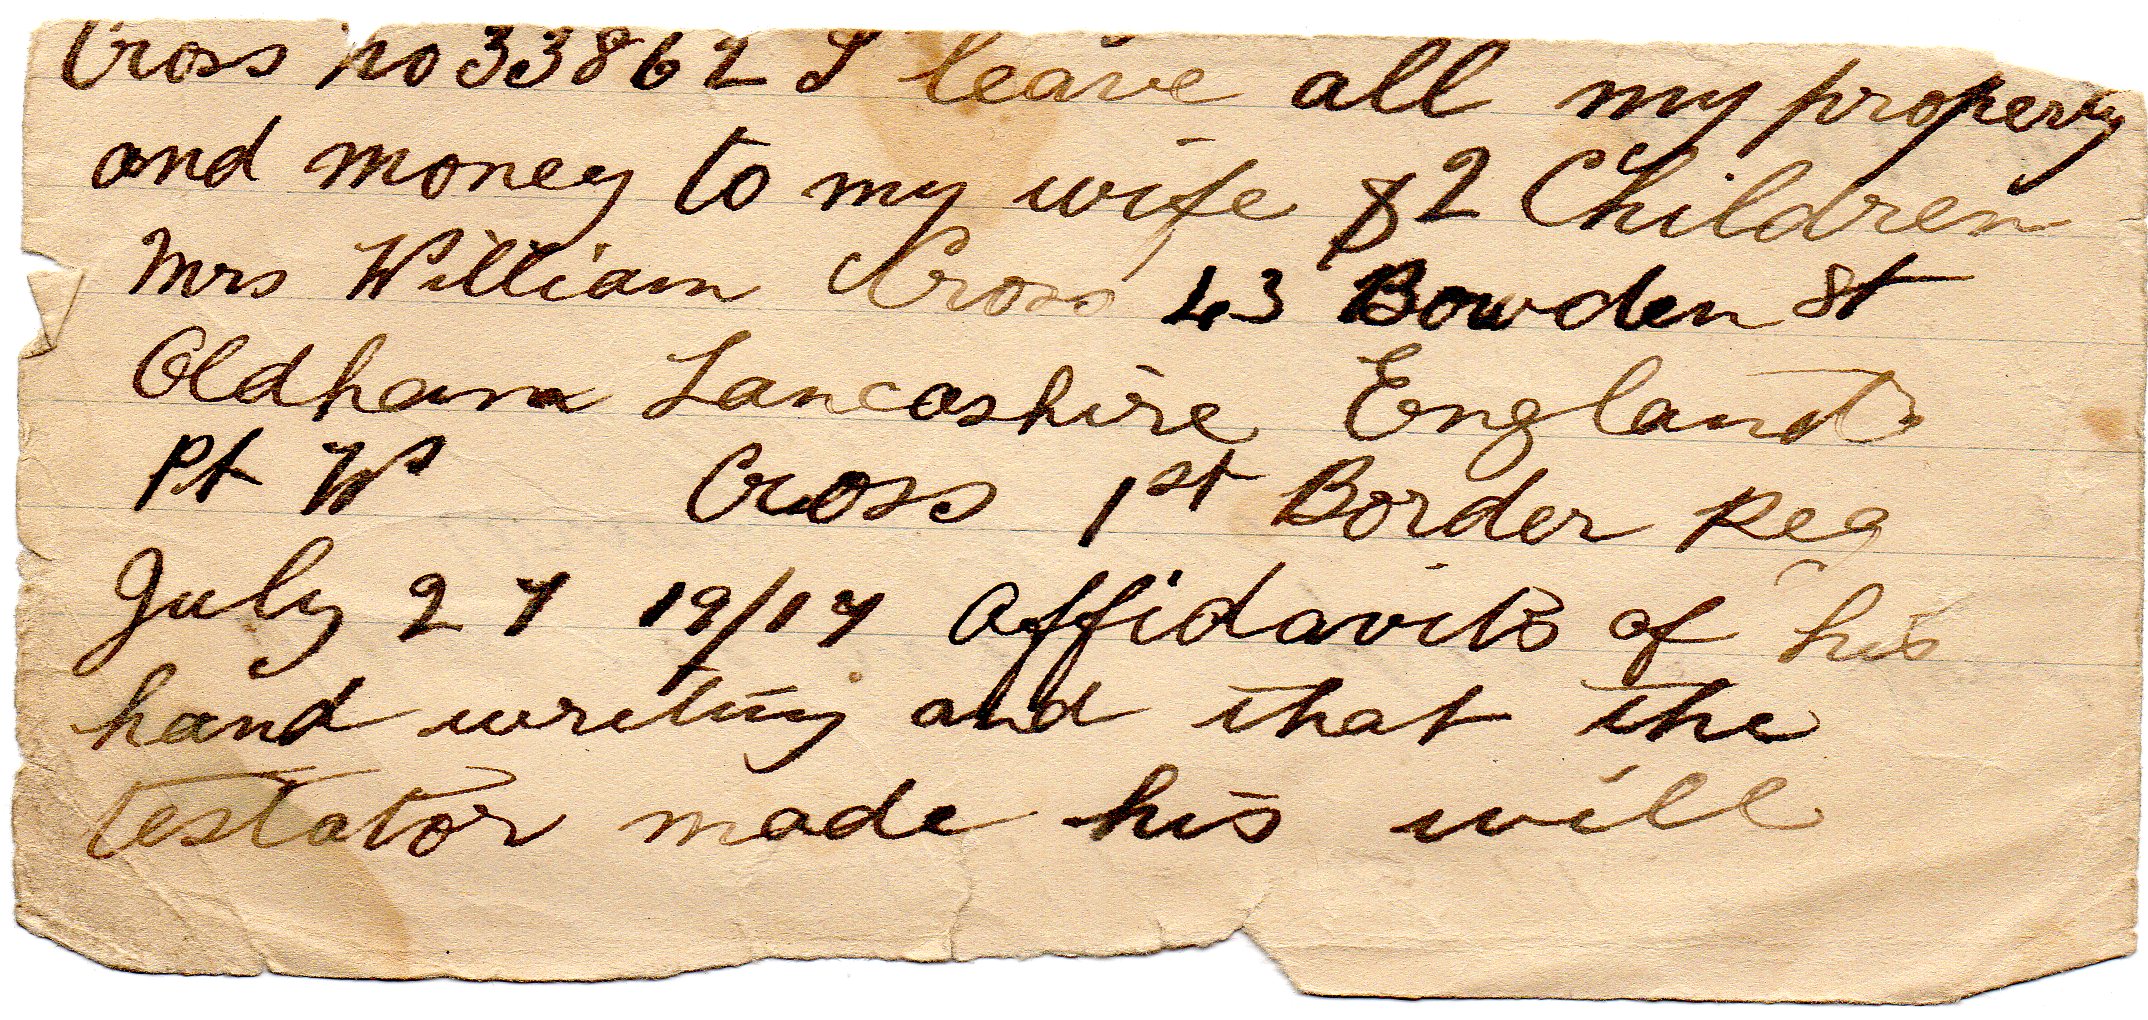 Cross no 33862 I leave all my property
and money to my wife & 2 Children
Mrs William Cross 43 Bowden St
Oldham Lancashire England
Pt W Cross 1st Border Reg
July 27 19/17 affidavits of his
hand writing and that the
testator made his will